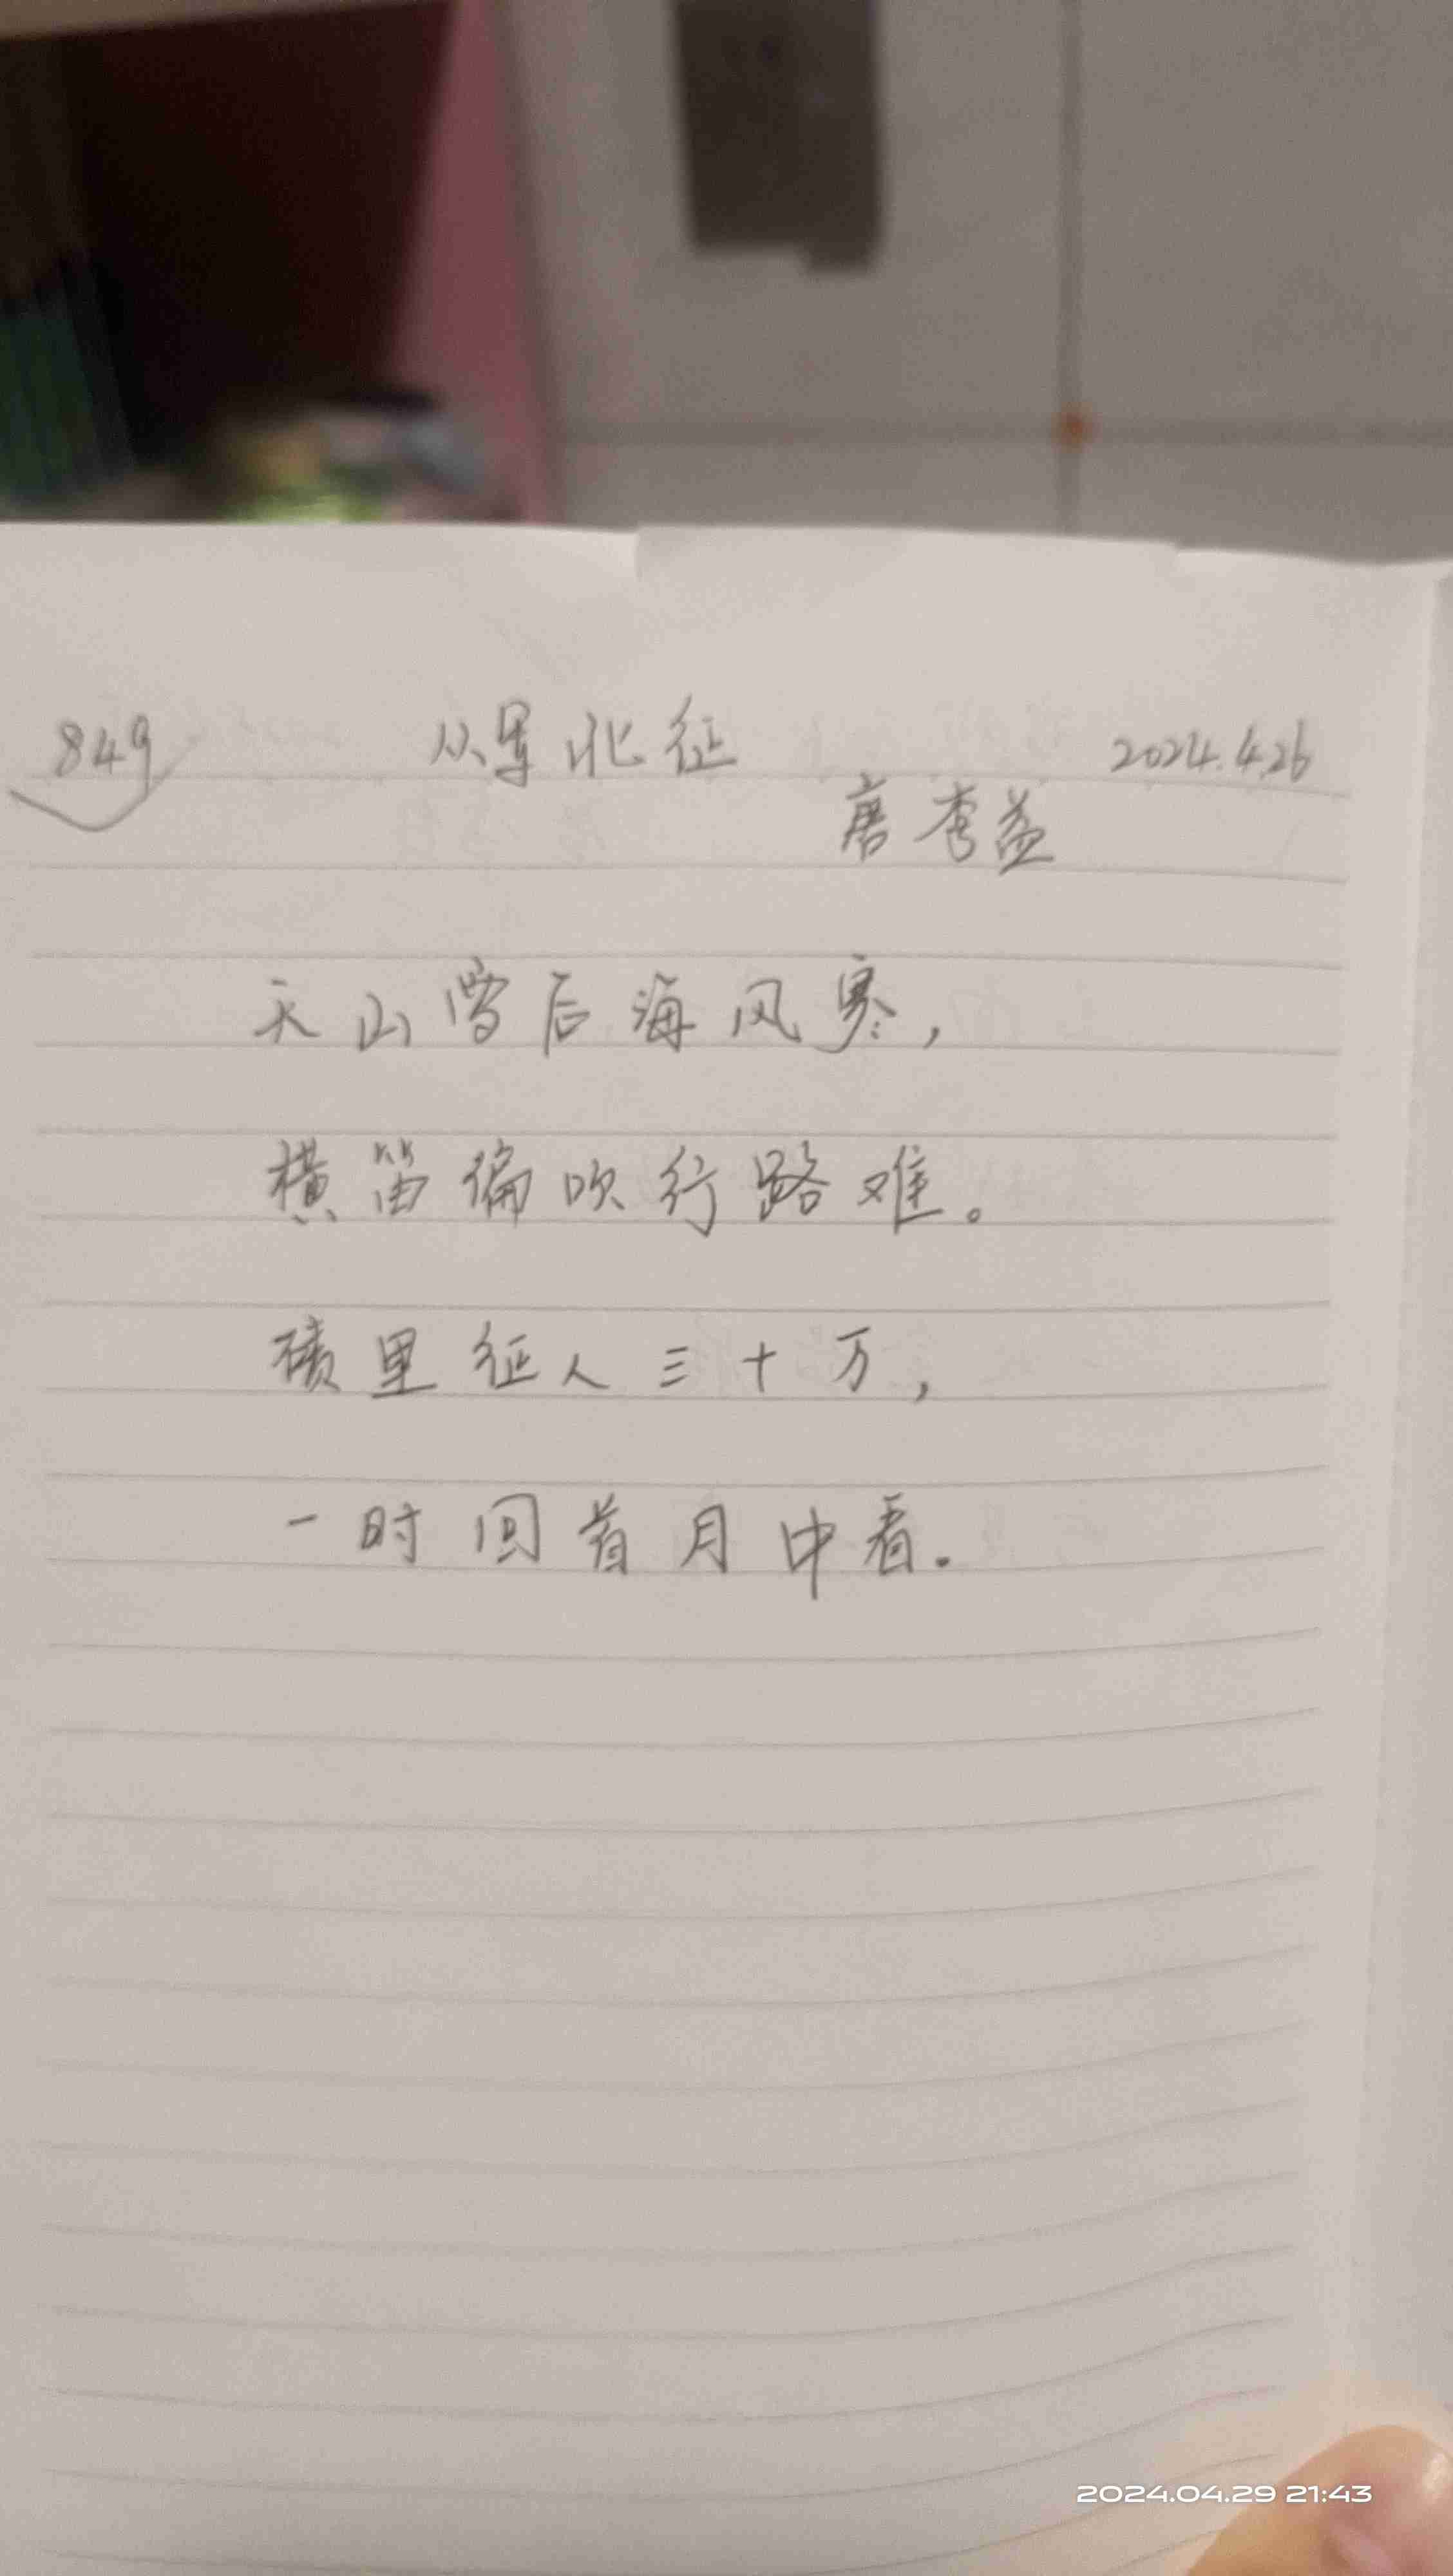 849 从军北征 2024.4.26
唐 李益
天山雪后海风寒，
横笛偏吹行路难。
碛里征人三十万，
一时回首月中看。
2024.04.29 21:43